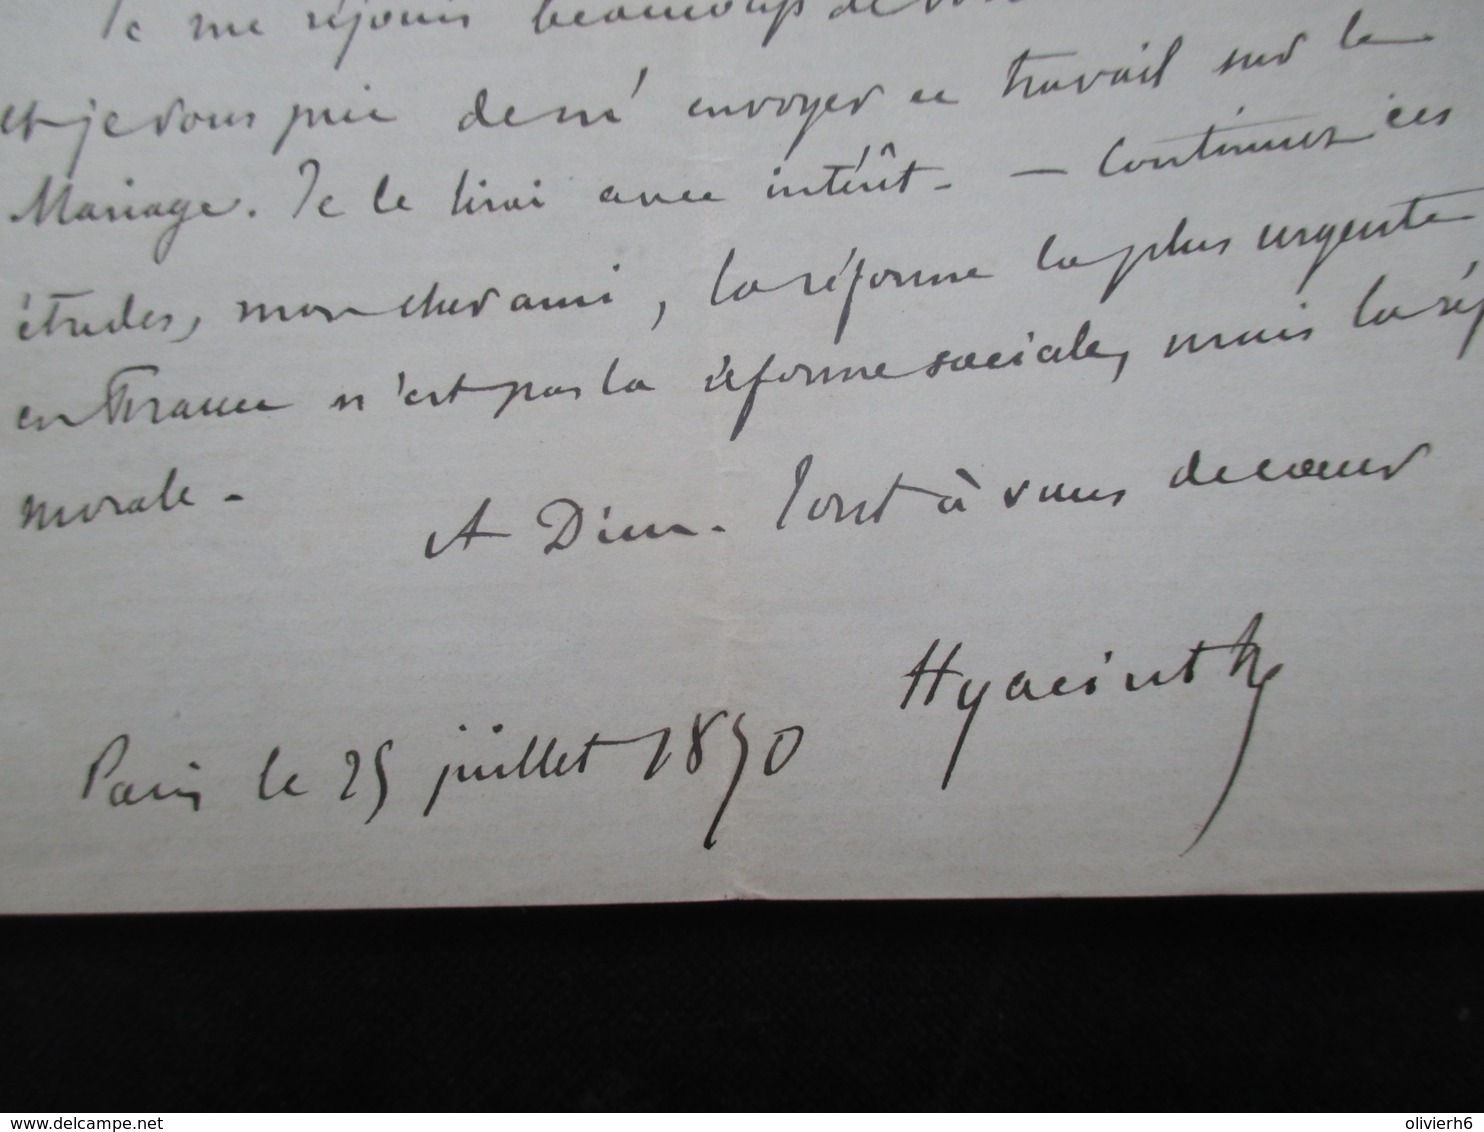 Je me réjouis beaucoup de
et je vous prie de m'envoyer ce travail sur le
Mariage. Je le lirai avec intérêt. — Continuez ces
études, mon cher ami, la réforme la plus urgente
en France n'est pas la réforme sociale, mais la ré
morale.
A Dieu. Tout à vous de cœur
Hyacinthe
Paris le 25 juillet 1890
delcampe.net
olivierh6